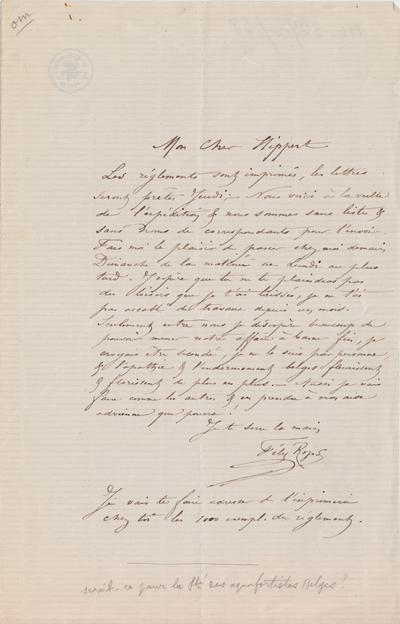 om
Mon Cher Hippert
Les réglements sont imprimés, les lettres
seront prêtes Jeudi; - Nous voici à la veille
de l'expédition & nous sommes sans listes &
sans noms de correspondants pour l'envoi.
Fais moi le plaisir de passer chez moi demain
Dimanche de la matinée ou Lundi au plus
tard. J'espère que tu ne te plaindras pas
des loisirs que je t'ai laissés, je ne t'ai
pas accablé de travaux depuis un mois.
Seulement entre nous je désespère beaucoup de
pouvoir mener notre affaire à bonne fin, je
croyais être secondé, je ne le suis par personne,
& l'apathie & l'endormement belges fleurissent
& fleurissent de plus en plus... Aussi je vais
faire comme les autres & en prendre à mon aise
advienne que pourra!
Je te serre la main
Félix Rops
Je vais te faire adresser de l'imprimerie
chez toi les 1000 exempl. du réglement.
serait-ce pour la Sté des aquafortistes Belges?